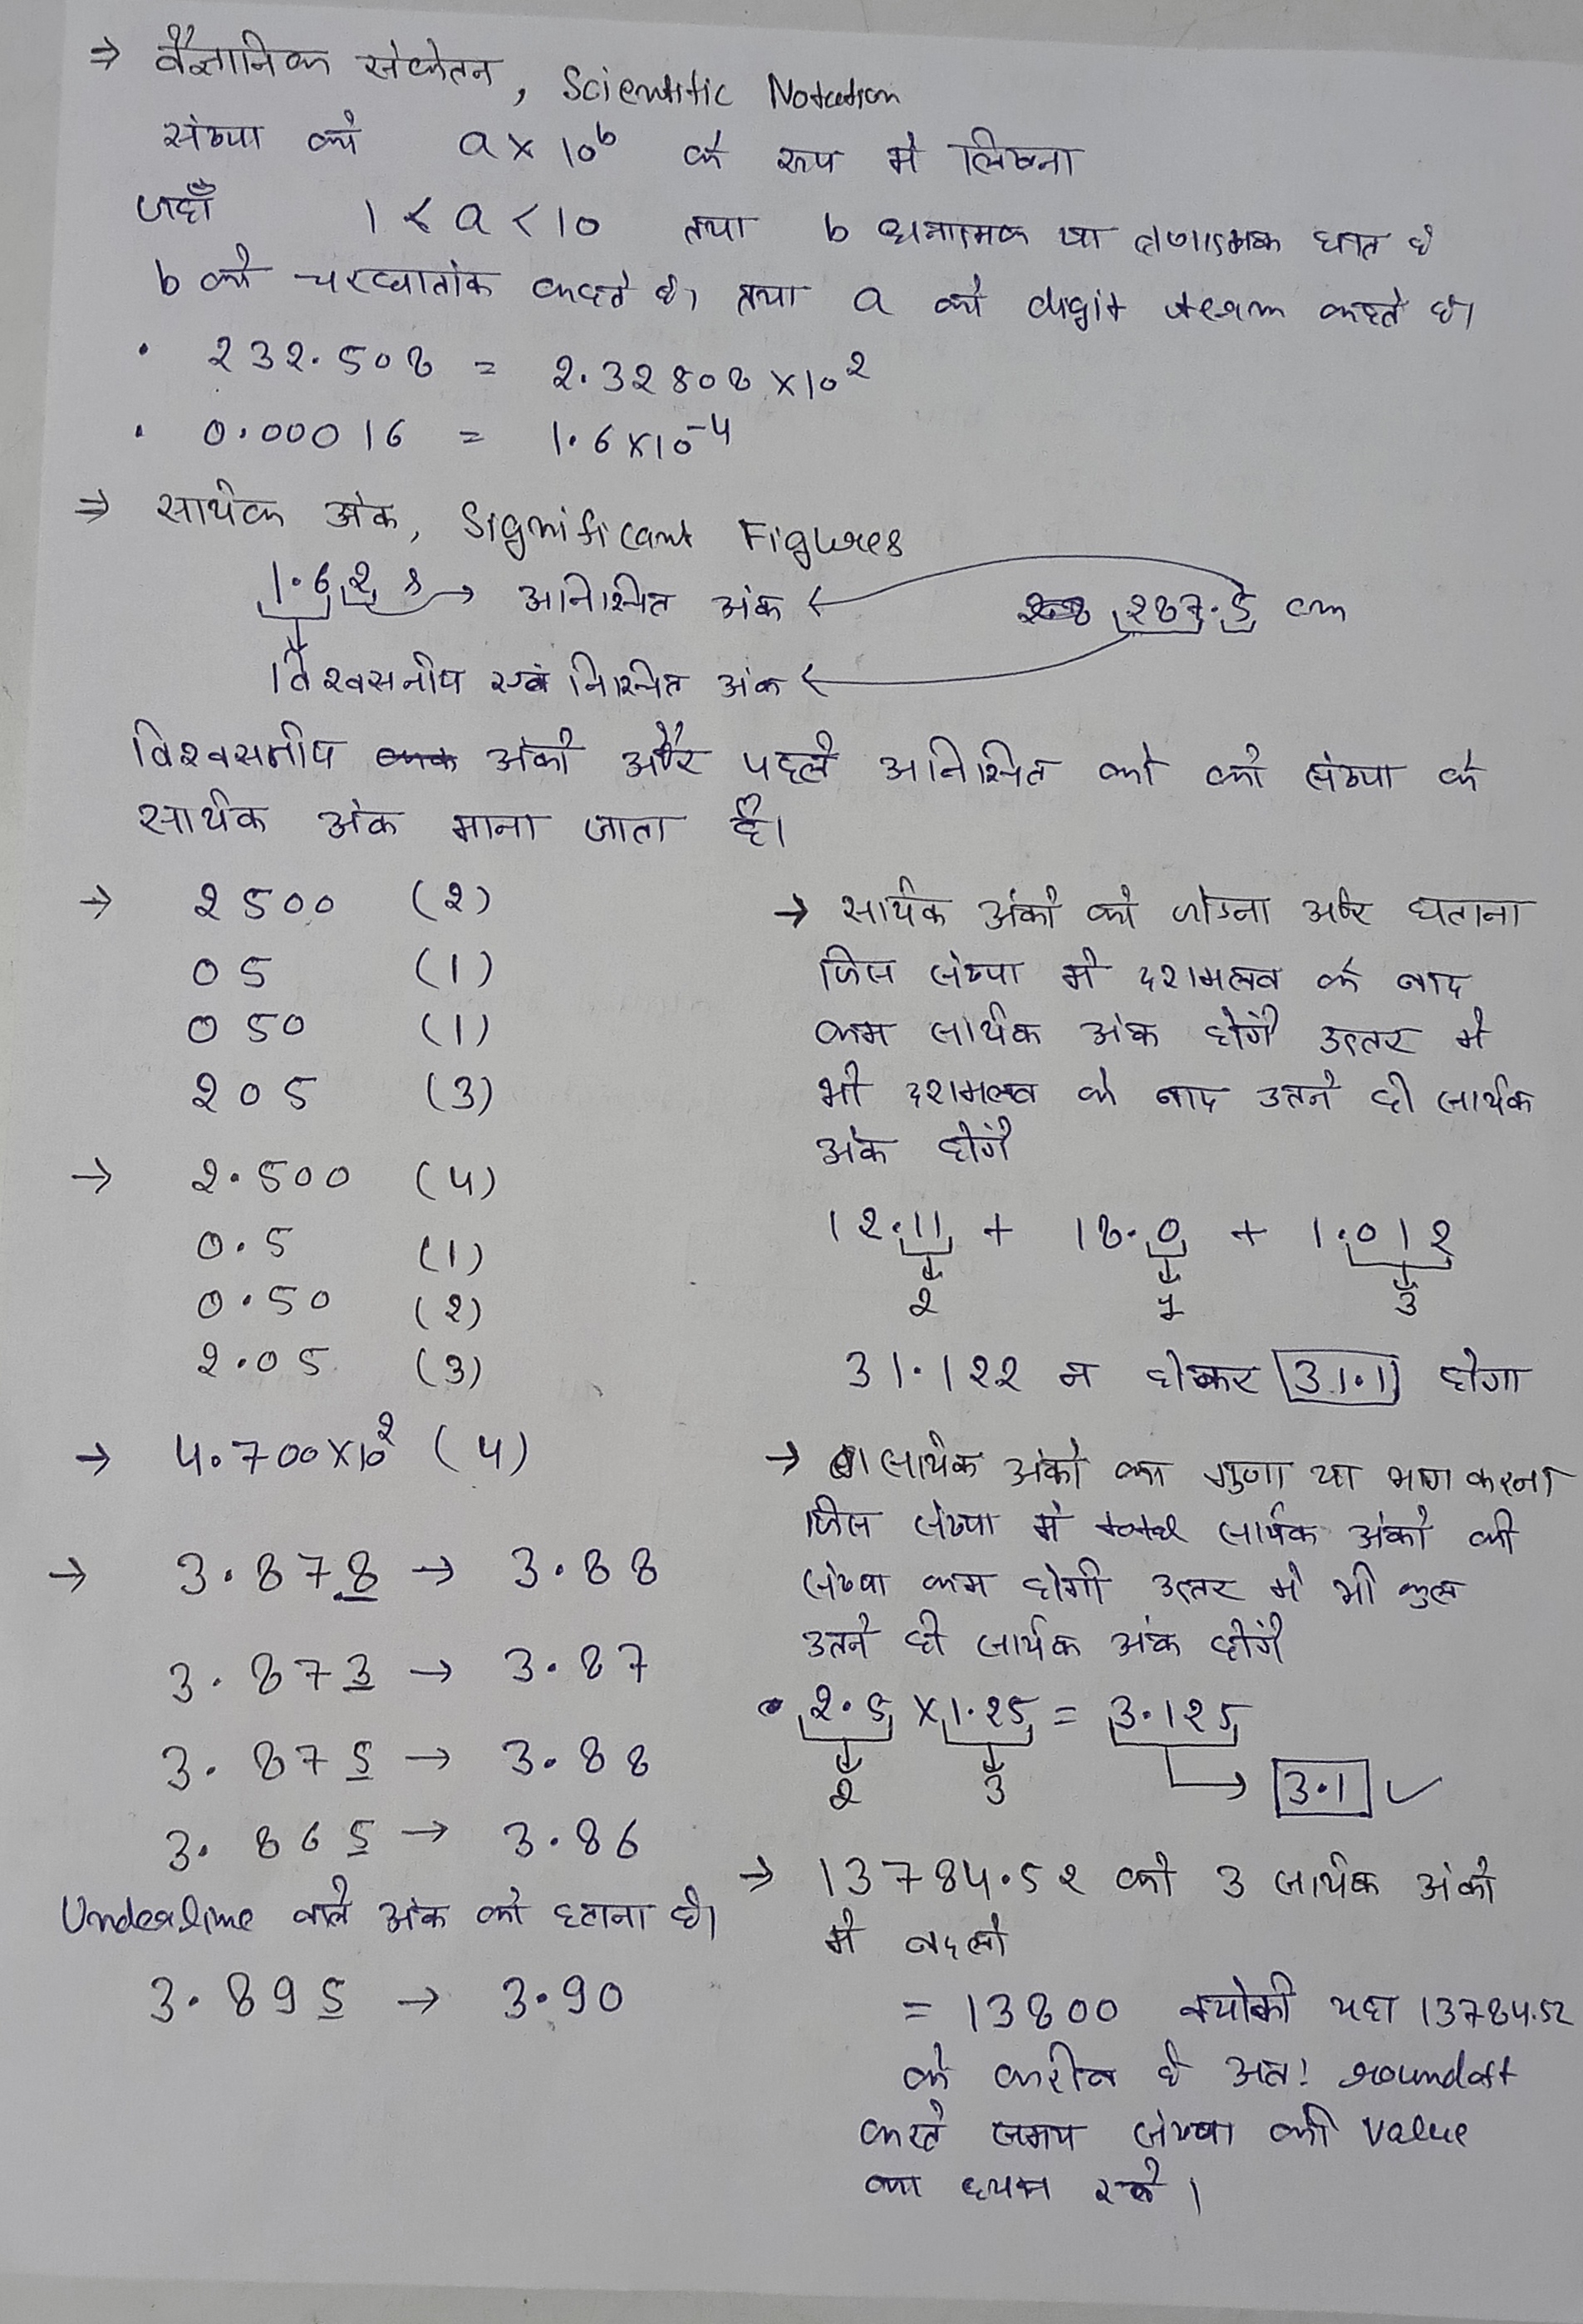 ⇒ वैज्ञानिक संकेतन, Scientific Notation
संख्या को a × 10^b के रूप में लिखना
जहाँ 1 < a < 10 तथा b धनात्मक या ऋणात्मक घात है
b को चरघातांक कहते है। तथा a को digit term कहते है।
• 232.508 = 2.32508 × 10^2
• 0.00016 = 1.6 × 10^-4
⇒ सार्थक अंक, Significant Figures
1.62 s → अनिश्चित अंक ← 287.5 cm
विश्वसनीय एवं निश्चित अंक ←
विश्वसनीय अंको और पहले अनिश्चित को को संख्या के
सार्थक अंक माना जाता है।
→ 2500 (2)
05 (1)
050 (1)
205 (3)
→ 2.500 (4)
0.5 (1)
0.50 (2)
2.05 (3)
→ 4.700×10^2 (4)
→ 3.878 → 3.88
3.873 → 3.87
3.875 → 3.88
3.865 → 3.86
Underline वाले अंक को हटाना है।
3.895 → 3.90
→ सार्थक अंको को जोडना और घटाना
जिस संख्या में दशमलव के बाद
कम सार्थक अंक होगें उत्तर में
भी दशमलव के बाद उतने ही सार्थक
अंक होगें
12.11 + 18.0 + 1.012
2 1 3
31.122 न होकर 31.1 होगा
→ सार्थक अंको का गुणा या भाग करना
जिस संख्या में total सार्थक अंको की
संख्या कम होगी उत्तर में भी कुल
उतने ही सार्थक अंक होगें
• 2.5 × 1.25 = 3.125
2 3 → 3.1 ✓
→ 13784.52 को 3 सार्थक अंको
में बदलो
= 13800 क्योकी यह 13784.52
के करीब है अत: roundoff
करते समय संख्या की value
का ध्यान रखे।